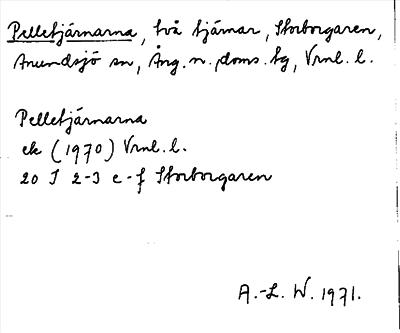 Pelletjärnarna, två tjärnar, Storborgaren,
Anundsjö sn, Ång. n. doms. tg, Vrnl. l.
Pelletjärnarna
ek (1970) Vrnl. l.
20 I 2-3 e-f Storborgaren
A.-L. W. 1971.